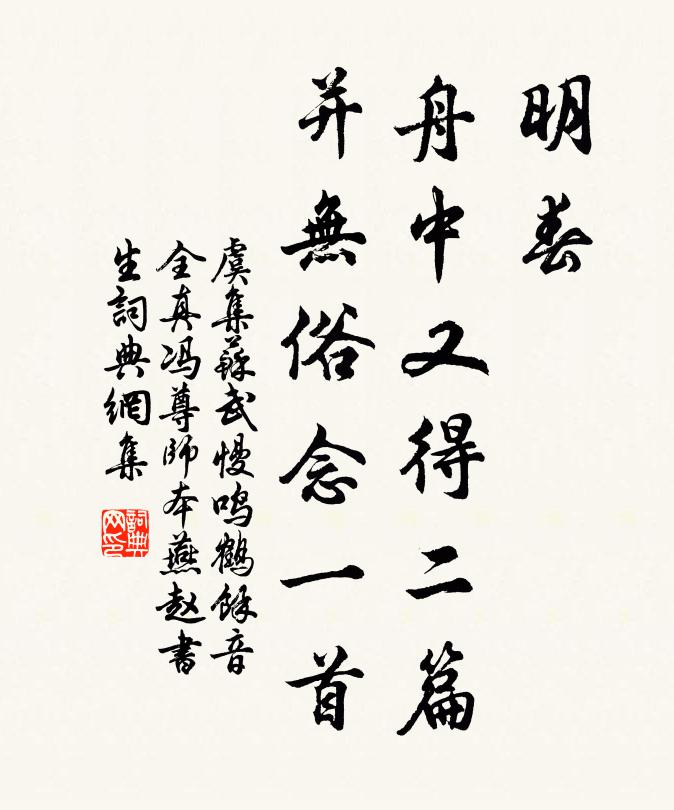 明春
舟中又得二篇
并無俗念一首
虞集蘇武慢鸣鶴餘音
全真冯尊師本燕赵書
生詞典網集
詞典
网印